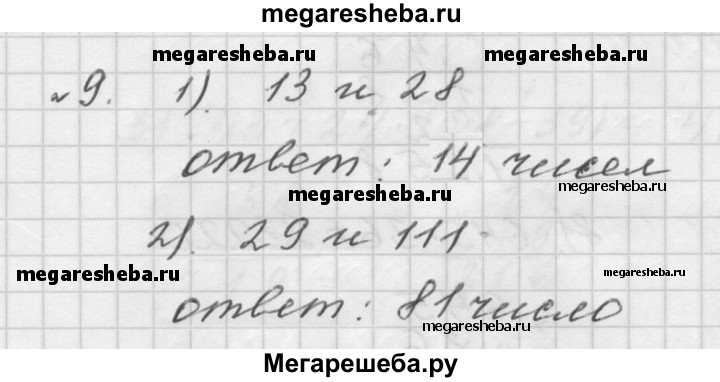 megaresheba.ru
megaresheba.ru megaresheba.ru
№9. 1). 13 и 28
ответ: 14 чисел
megaresheba.ru megaresheba.ru
2). 29 и 111
megaresheba.ru megaresheba.ru
ответ: 81 число
megaresheba.ru
Мегарешеба.ру